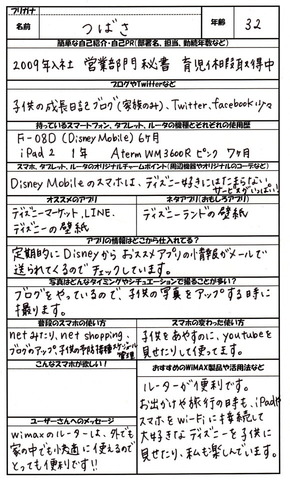 フリガナ
名前 つばさ 年齢 32
簡単な自己紹介・自己PR(部署名、担当、勤続年数など)
2009年入社 営業部門秘書 育児休暇取得中
ブログやTwitterなど
子供の成長日記とブログ(家族のみ)、Twitter、facebook少々
持っているスマートフォン、タブレット、ルータの機種とそれぞれの使用歴
F-08D (Disney Mobile) 6ヶ月
iPad 2 1年 Aterm WM3600R ピンク 7ヶ月
スマホ、タブレット、ルータのオリジナルチャームポイント(周辺機器やオリジナルのコーデなど)
Disney Mobileのスマホは、ディズニー好きにはたまらない
サービスがいっぱい!
オススメのアプリ
ディズニーマーケット、LINE、
ディズニーの壁紙
ネタアプリ(おもしろアプリ)
ディズニーランドの壁紙
アプリの情報はどこから仕入れてる?
定期的にDisneyからおススメアプリの情報がメールで
送られてくるのでチェックしています。
写真はどんなタイミングやシチュエーションで撮ることが多い?
ブログをやっているので、子供の写真をアップする時に
撮ります。
普段のスマホの使い方
netみたり、net shopping、
ブログのアップ、子供の予防接種スケジュール
管理
スマホの変わった使い方
子供をあやすのに、youtubeを
見せたりして使ってます。
こんなスマホが欲しい!
おすすめのWiMAX製品や活用法など
ルーターが便利です。
お出かけや旅行の日も、iPadや
スマホをwi-Fiに接続して
大好きなディズニーを子供に
見せたり、私も楽しんでいます。
ユーザーさんへのメッセージ
wimaxのルーターは、外でも
家の中でも快適に使えるので
とっても便利です!!